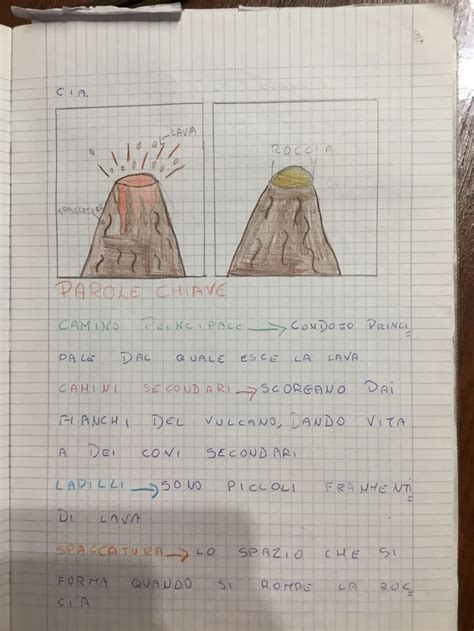 CIA.
LAVA
ROCCIA
SPACCATURA
PAROLE CHIAVE
CAMINO PRINCIPALE → CONDOTO PRINCI
PALE DAL QUALE ESCE LA LAVA
CAMINI SECONDARI → SCORGANO DAI
FIANCHI DEL VULCANO, DANDO VITA
A DEI CONI SECONDARI
LAPILLI → SONO PICCOLI FRAMMENTI
DI LAVA
SPACCATURA → LO SPAZIO CHE SI
FORMA QUANDO SI ROMPE LA ROC
CIA